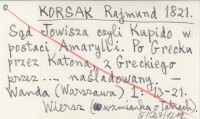 KORSAK Rajmund 1821.
Sąd Jowisza czyli Kupido w
postaci Amarylli. Po Grecku
przez Katona, z Greckiego
przez .... naśladowany. —
Wanda (Warszawa) I: 13-21.
Wiersz (wzmianka o latach).